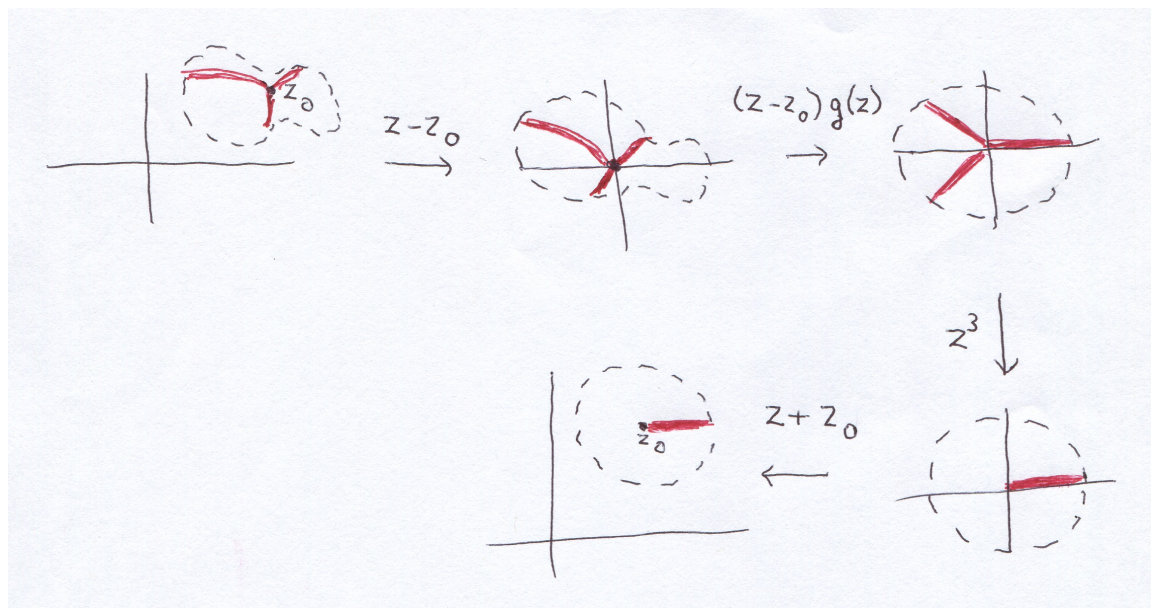 z₀
z-z₀
(z-z₀)g(z)
z³
z+z₀
z₀